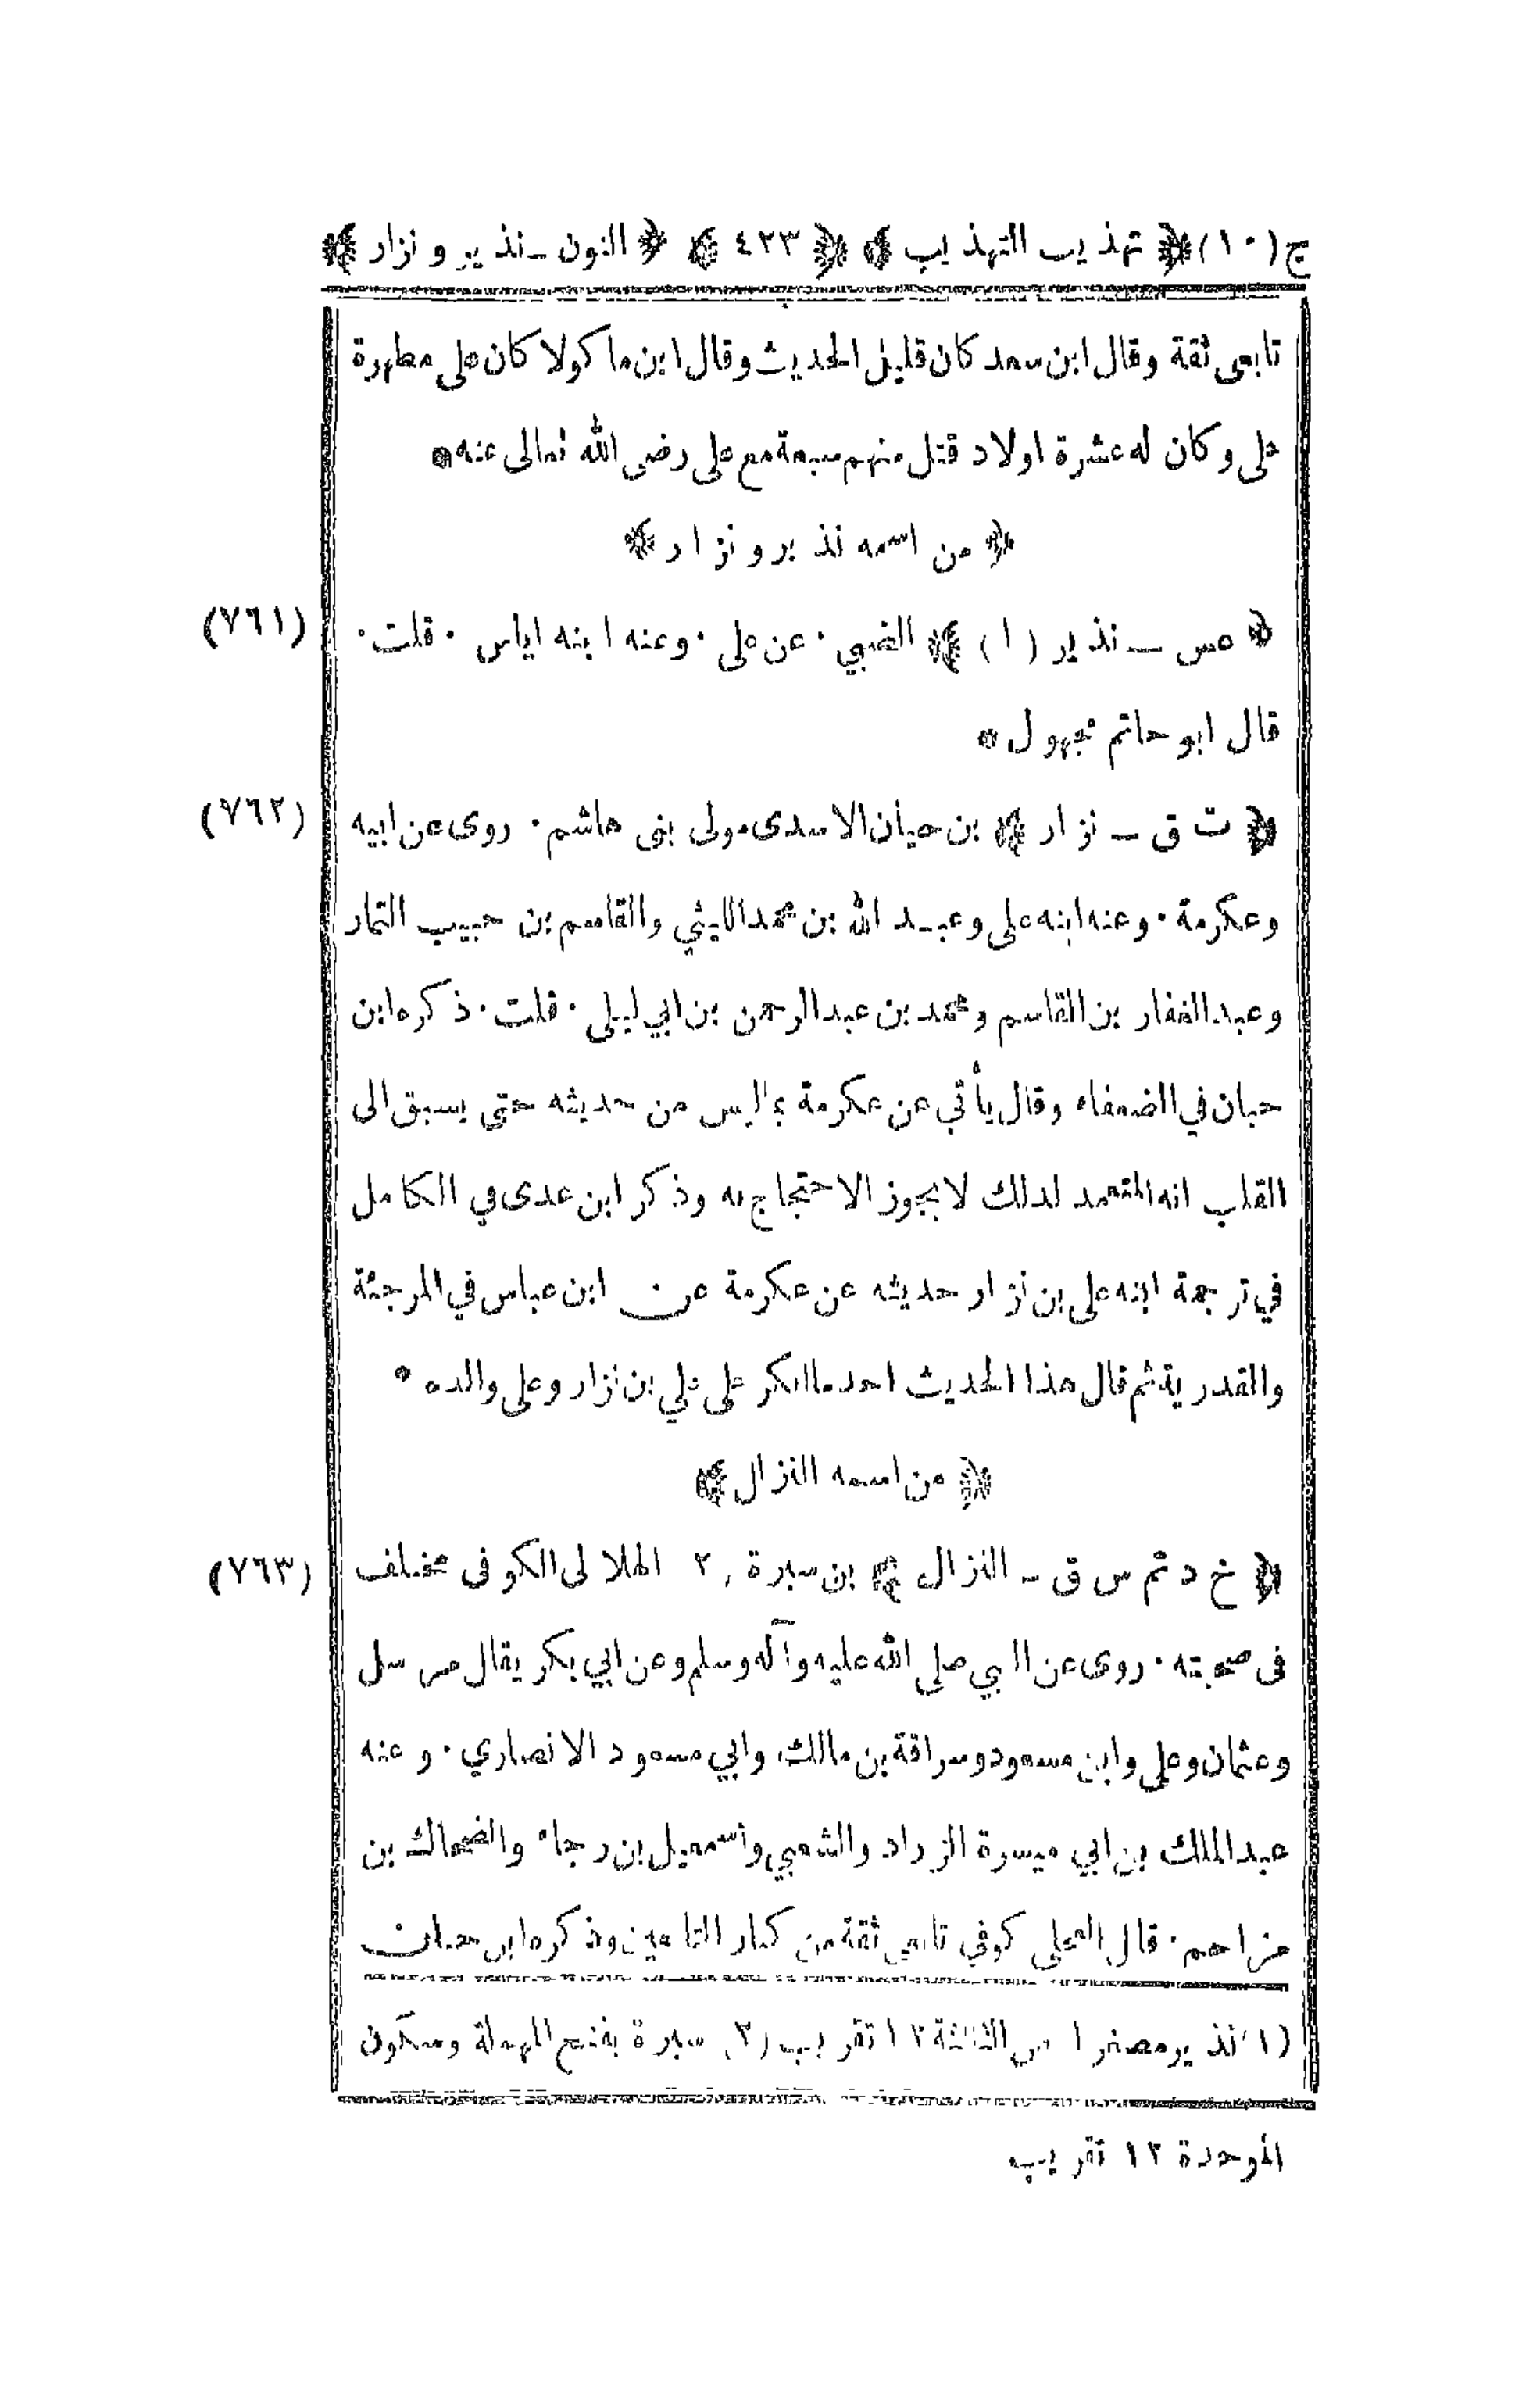 ج (١٠) ﴿ تهذيب التهذيب ﴾ ﴿ ٤٢٣ ﴾ ﴿ النون ـ نذير و نزار ﴾
تابعى ثقة وقال ابن سعد كان قليل الحديث وقال ابن ماكولا كان على مطهرة
على وكان له عشرة اولاد قتل منهم سبعة مع على رضى الله تعالى عنه *
﴿ من اسمه نذير و نزار ﴾
(٧٦١)
﴿ عس ـ نذير (١) ﴾ الضبي · عن على · وعنه ابنه اياس · قلت ·
قال ابو حاتم مجهول *
(٧٦٢)
﴿ ت ق ـ نزار ﴾ بن حيان الاسدى مولى بنى هاشم · روى عن ابيه
وعكرمة · وعنه ابنه على وعبد الله بن محمد الليثي والقاسم بن حبيب التمار
وعبد الغفار بن القاسم ومحمد بن عبد الرحمن بن ابي ليلى · قلت · ذكره ابن
حبان في الضعفاء وقال يأتي عن عكرمة بما ليس من حديثه حتى يسبق الى
القلب انه المتعمد لذلك لا يجوز الاحتجاج به وذكر ابن عدى في الكامل
في ترجمة ابنه على بن نزار حديثه عن عكرمة عن ابن عباس في المرجئة
والقدرية ثم قال هذا الحديث احد ما انكر على علي بن نزار وعلى والده *
﴿ من اسمه النزال ﴾
(٧٦٣)
﴿ خ د تم س ق ـ النزال ﴾ بن سبرة ٢ الهلالى الكوفى مختلف
فى صحبته · روى عن النبي صلى الله عليه وآله وسلم وعن ابي بكر يقال مرسل
وعثمان وعلى وابن مسعود وسراقة بن مالك وابي مسعود الانصاري · وعنه
عبد الملك بن ابي ميسرة الزراد والشعبي واسمعيل بن رجاء والضحاك بن
مزاحم · قال العجلى كوفي تابعي ثقة من كبار التابعين وذكره ابن حبان
(١) نذير مصغرا من الثالثة ١٢ تقريب (٢) سبرة بفتح المهملة وسكون
الموحدة ١٢ تقريب